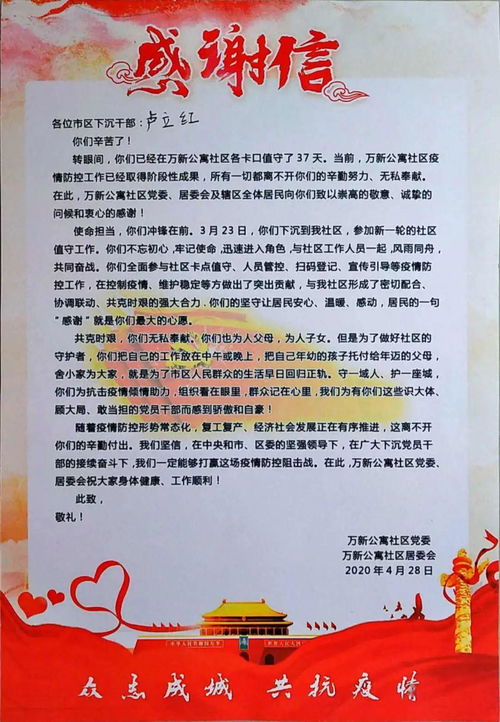 感谢信
各位市区下沉干部：卢立红
你们辛苦了！
转眼间，你们已经在万新公寓社区各卡口值守了 37 天。当前，万新公寓社区疫
情防控工作已经取得阶段性成果，所有一切都离不开你们的辛勤努力、无私奉献。
在此，万新公寓社区党委、居委会及辖区全体居民向你们致以崇高的敬意、诚挚的
问候和衷心的感谢！
使命担当，你们冲锋在前。3 月 23 日，你们下沉到我社区，参加新一轮的社区
值守工作。你们不忘初心，牢记使命，迅速进入角色，与社区工作人员一起，风雨同舟，
共同奋战。你们全面参与社区卡点值守、人员管控、扫码登记、宣传引导等疫情防
控工作，在控制疫情、维护稳定等方做出了突出贡献，与我社区形成了密切配合、
协调联动、共克时艰的强大合力．你们的坚守让居民安心、温暖、感动，居民的一句
“感谢”就是你们最大的心愿。
共克时艰，你们无私奉献。你们也为人父母，为人子女。但是为了做好社区的
守护者，你们把自己的工作放在中午或晚上，把自己年幼的孩子托付给年迈的父母，
舍小家为大家，就是为了市区人民群众的生活早日回归正轨。守一域人、护一座城，
你们为抗击疫情倾情助力，组织看在眼里，群众记在心里，我们为有你们这些识大体、
顾大局、敢当担的党员干部而感到骄傲和自豪！
随着疫情防控形势常态化，复工复产、经济社会发展正在有序推进，这离不开
你们的辛勤付出。我们坚信，在中央和市、区委的坚强领导下，在广大下沉党员干
部的接续奋斗下，我们一定能够打赢这场疫情防控阻击战。在此，万新公寓社区党委、
居委会祝大家身体健康、工作顺利！
此致，
敬礼！
万新公寓社区党委
万新公寓社区居委会
2020 年 4 月 28 日
众志成城 共抗疫情